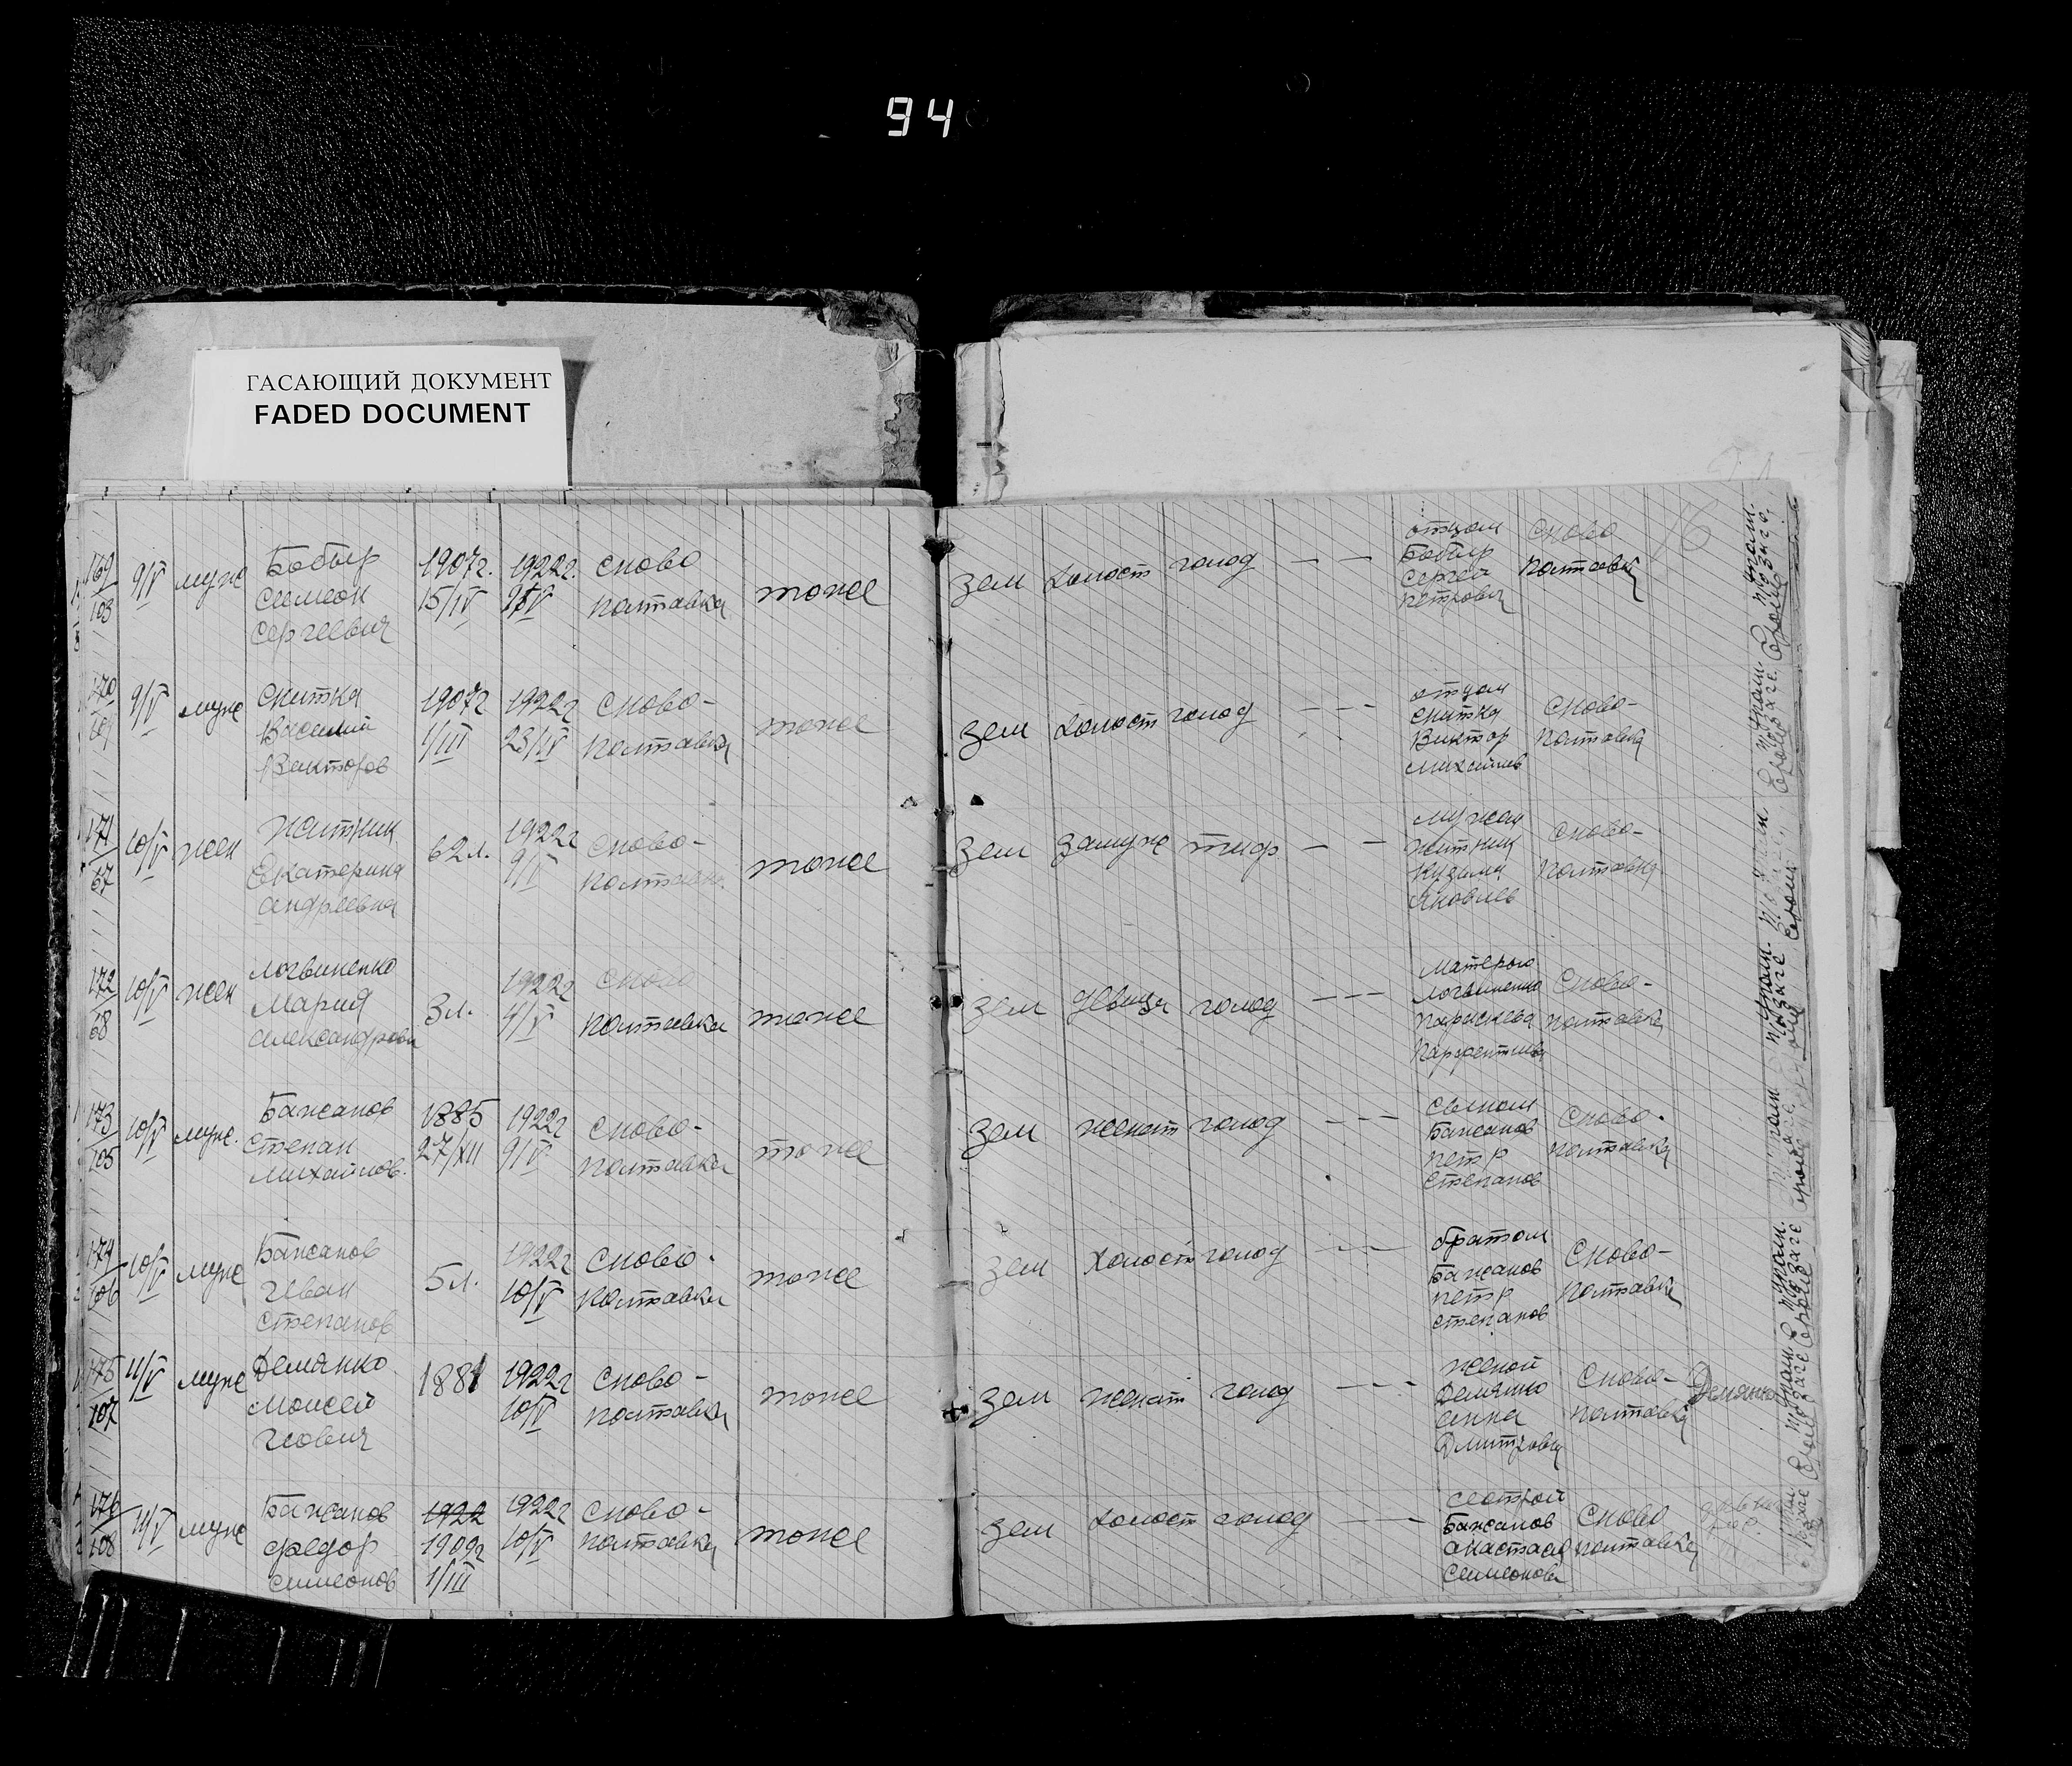 94
ГАСАЮЩИЙ ДОКУМЕНТ
FADED DOCUMENT
16
169/103 9/V муж Бобыр Симеон Сергеевич 1907г. 15/IV 1922г. с ново полтавка тоже зем холост голод — — отцом Бобыр Сергей Петрович с ново полтавка
170 9/V муж Скитка Василий Викторов 1907г 1/III 1922г 23/IV с ново-полтавка тоже зем холост голод - - - отцом Скитка Виктор Михайлов с ново-полтавка
171/67 10/V жен Житник Екатерина Андреевна 62л. 1922г 9/V с ново-полтавка тоже зем замуж тиф — — мужем Житник Кузьма Яковлев с ново-полтавка
172/68 10/V жен Логвиненко Мария Александровн 3л. 1922г 4/V с ново полтавка тоже зем девица голод - - - матерью Логвиненко Параскева Парфентиев с ново-полтавка
173/105 10/V муж. Бажанов Степан Михайлов. 1885 27/XII 1922г 9/V с ново-полтавка тоже зем женат голод - - - сыном Бажанов Петр Степанов с ново-полтавка
174/106 10/V муж Бажанов Иван Степанов 5л. 1922г 10/V с ново-полтавка тоже зем холост голод - - - братом Бажанов Петр Степанов с ново-полтавка
175/107 11/V муж Демянко Моисей Иович 1881 1922г 10/V с ново-полтавка тоже зем женат голод - - - женой Демянко Анна Дмитровн с ново-полтавка Демянко
176/108 11/V муж Бажанов Федор Симеонов 1922 1909г 1/III 1922г 10/V с ново-полтавка тоже зем холост голод — — сестрой Бажанов Анастасия Симеонова с ново полтавка